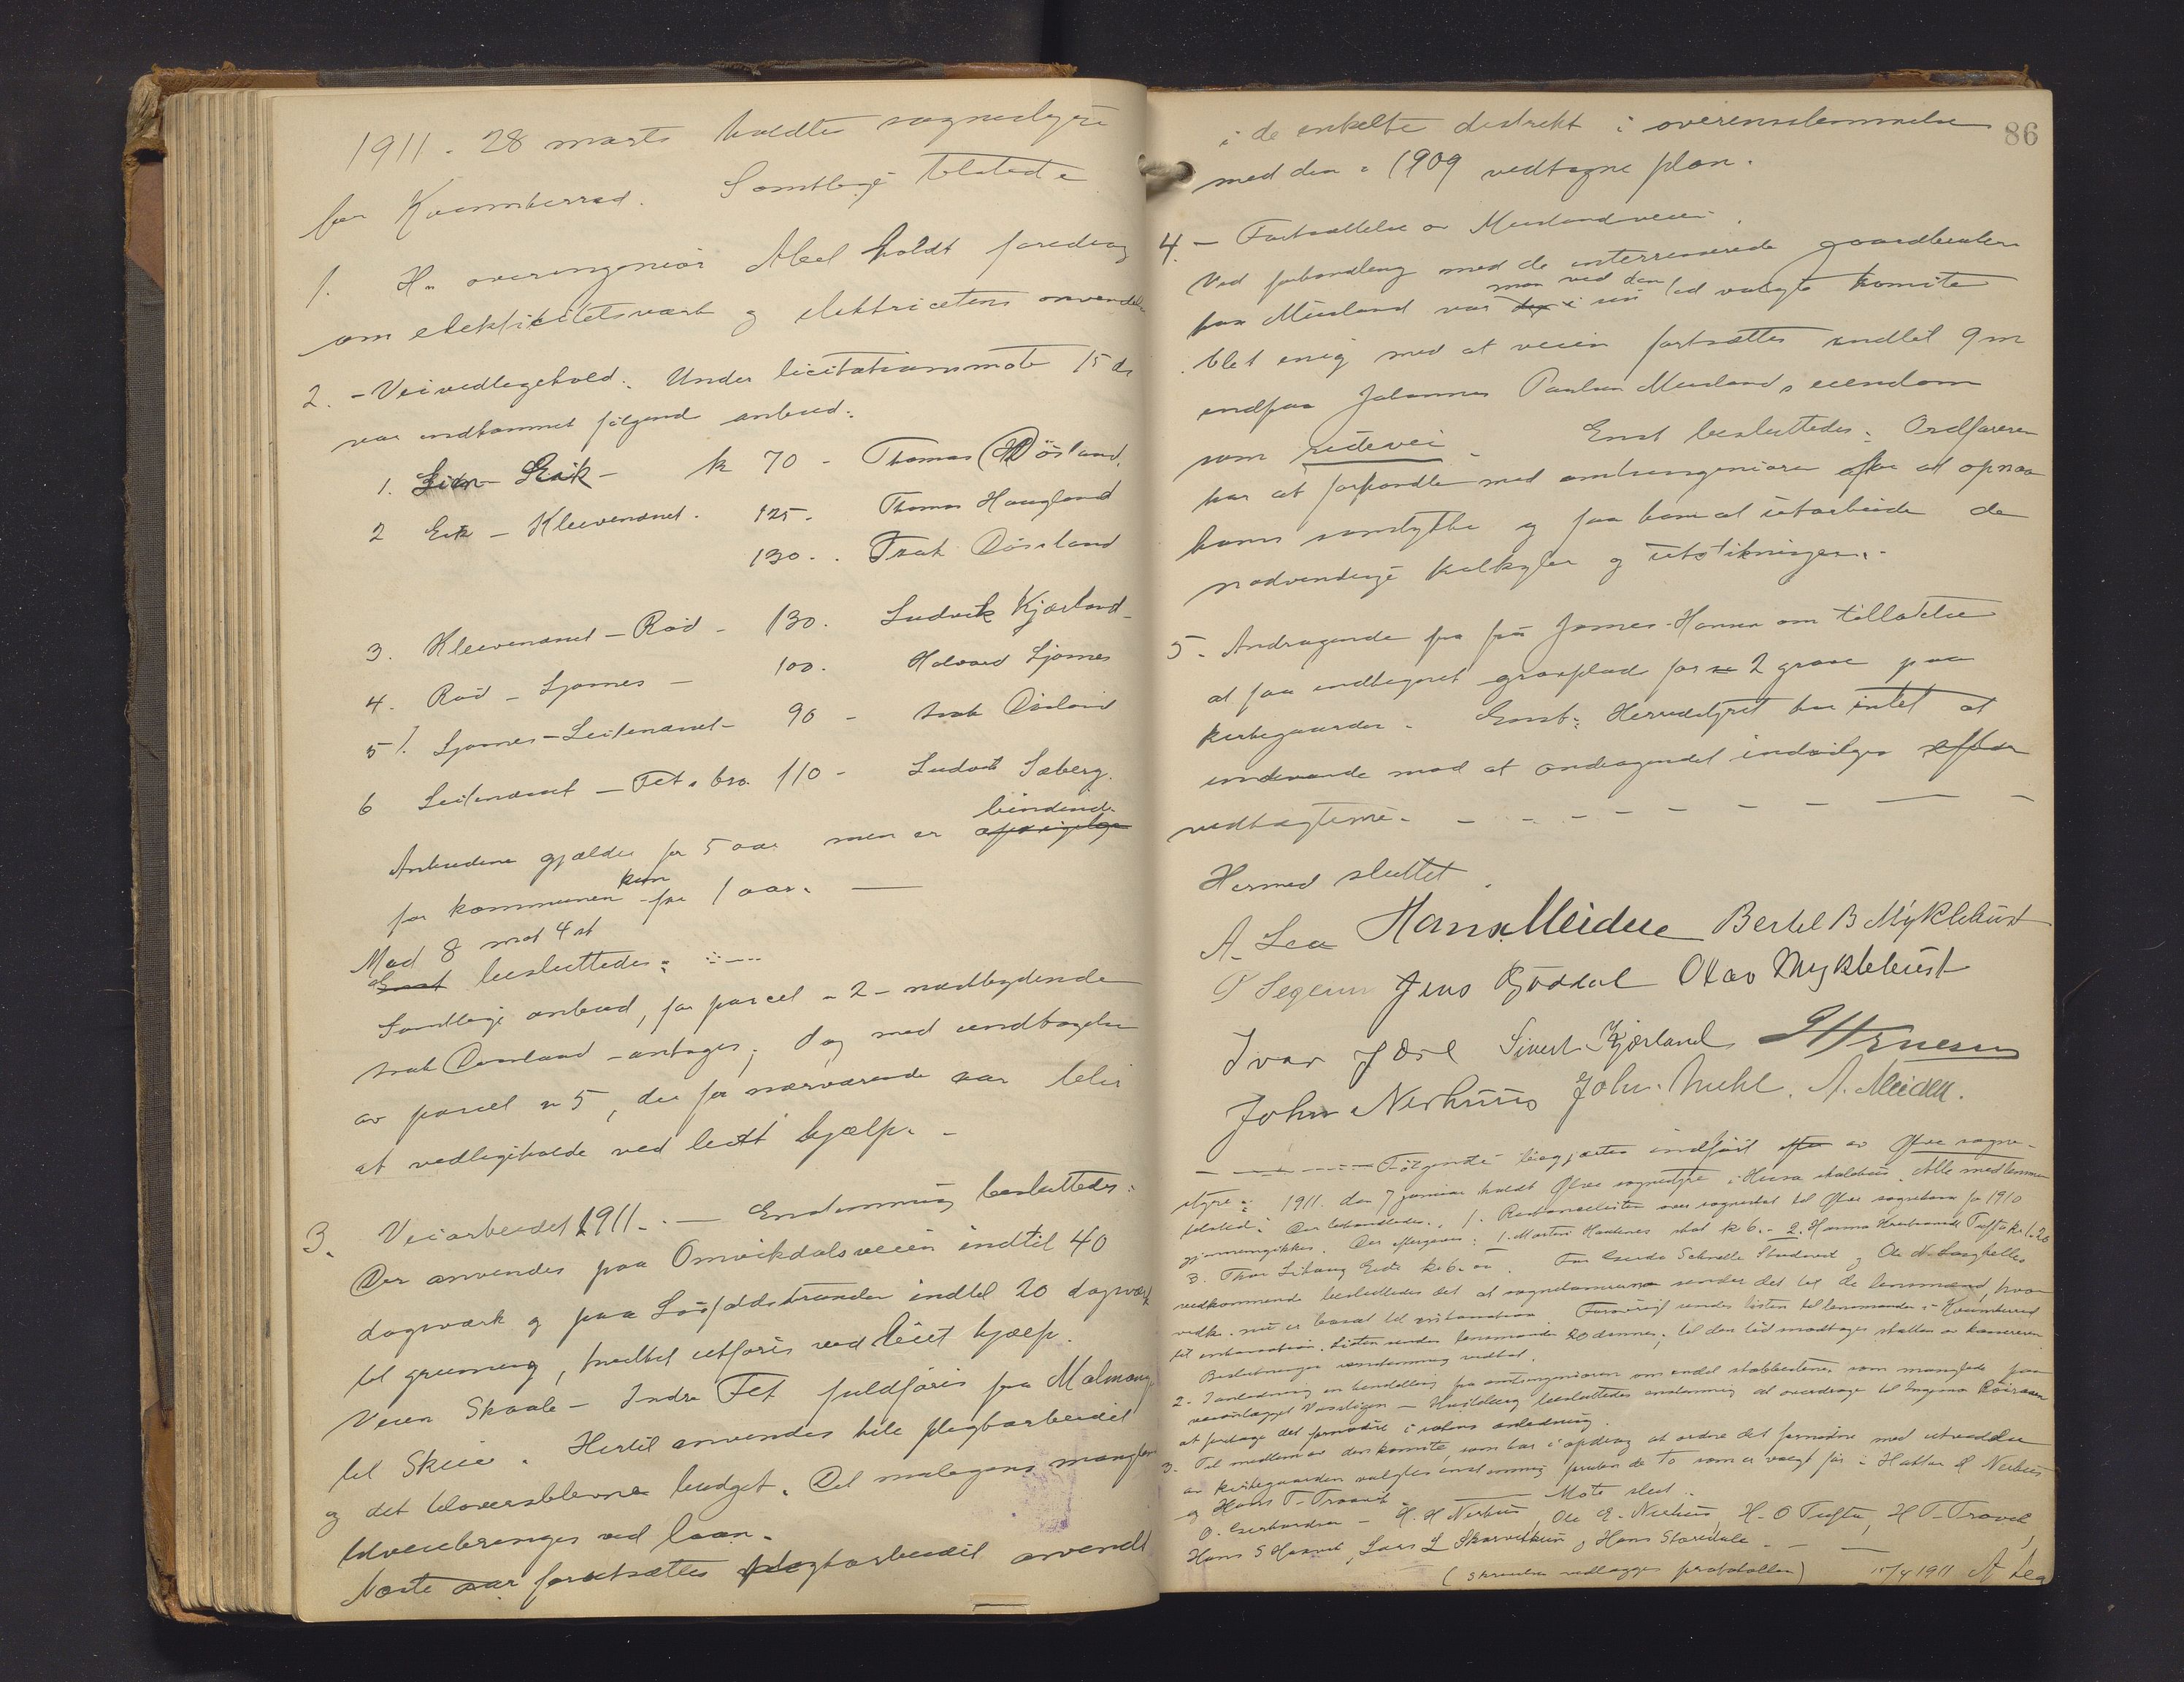 1911. 28 marts holdtes sognestyre
for Kvinnherred. Samtlige tilstede
1. Hr overingeniör Abel holdt foredrag
om elektricitetsverk og elektricitetens anvendelse
2. - Veivedlegehold. Under licitationsmöte 15 ds
var indkommet fölgend anbud:
1. Eik - k 70 - Thomas Dösland.
2 Eik - Kleivenæset. 125. Thomas Haugland
130. Trak Dösland
3. Kleivenæset - Röd - 130. Ludvik Kjærland
4. Röd - Ljosnes - 100. Halvard Ljosnes
5. Ljosnes - Leitenæset - 90 - Isak Dösland
6 Leitenæset - Fets bro. 110 - Ludvik Sæberg.
bindende
Anbudene gjælder for 5 aar men er
kun
for kommunen for 1 aar. —
Mod 8 mot 4 st
Enst besluttedes:
Samtlige anbud, for parcel - 2 - næstbydende
Isak Dösland - antages; dog med undtagelse
av parcel n 5, der for nærværende aar blir
at vedligeholde ved leiet hjælp. -
3. Veiarbeidet 1911. - Enstemmig besluttedes:
Der anvendes paa Omvikdalsveien indtil 40
dagsværk og paa Löfaldstranden indtil 20 dagsværk
til grusning, hvilket utföres ved leiet hjælp.
Veien Skaale - Indre Fet fuldföres fra Malmanger
til Skeie. Hertil anvendes hele pligtarbeidet
og det tiloversblevne budget. Det mulegens manglende
tilveiebringes ved laan.
Næste aar fortsættes pligtarbeidet anvendt
86
i de enkelte distrikt i overensstemmelse
med den i 1909 vedtagne plan.
4. - Fortsættelse av Muslandveien.
Ved forhandling med de interesserede gaardbrukere
man ved den
paa Musland var i sin tid valgte komite
blet enig med at veien fortsættes indtil 9 m
indpaa Johannes Paulsen Muslands eiendom
som ridevei. Enst besluttedes: Ordföreren
har at forhandle med amtsingeniören for at opnaa
hans samtykke og faa ham at utarbeide de
nödvendige kalkyler og utstikninger.
5. Andragende fra frü James-Hansen om tilladelse
at faa indhegnet gravplads for 2 grave paa
kirkegaarden. Enst: Herredstyret har intet at
indvende mod at andragendet indvilges efter
vedtægterne.
Hermed sluttet.
A. Lea Hans Meidell Bertel B Myklebust
Jens Gjöddal Olav Myklebust
Ivar Sivert Kjærland
John Nerhuus John A. Meidell.
Fölgende begjæres indfört av Ölve sogne-
styre: 1911. den 7 januar holdt Ölve sognestyre i Husa skolehus. Alle medlemmer
tilstede. Der behandledes: 1. Restanselisten over sogneskat til Ölve sognekasse for 1910
gjennemgikkes. Der eftergives: 1. Marten skat k 6.- 2. Hanna Tufte kr 1.20
3. Thor Eide k 6.00. For Schnelle og Ole N. Langhelle
vedkommende besluttedes det at sognekassereren sender det til de lensmænd, hvor
vedk. nu er bosat til inkassation. Forövrigt sendes listen til lensmanden i Kvinnherred
til inkassation. Listen sendes lensmanden 20 dennes; til den tid modtages skatten av kassereren.
Beslutninger enstemmig vedtat.
2. I anledning en henstilling fra amtsingeniören om endel stabbestene som manglede paa
veianlegget - Husteberg besluttedes enstemmig at overdrage til Ingemar
at foretage det fornödne i sakens anledning.
3. Til medlem av den komite, som har i opdrag at ordne det fornödne med utvidelse
av kirkegaarden valgtes enstemmig foruden de to som er valgt för: Hattar Nerhus
og Hans T. Traavik. Möte slut.
O. Gerhardsen - H. H Nerhus, Ole E. Nerhus, H. O Tufta, H T. Travik,
Hans S Hesvik, Lars L og Hans Storedale. -
(skrivelse vedlægges protokollen) 15/4 1911 A Lea